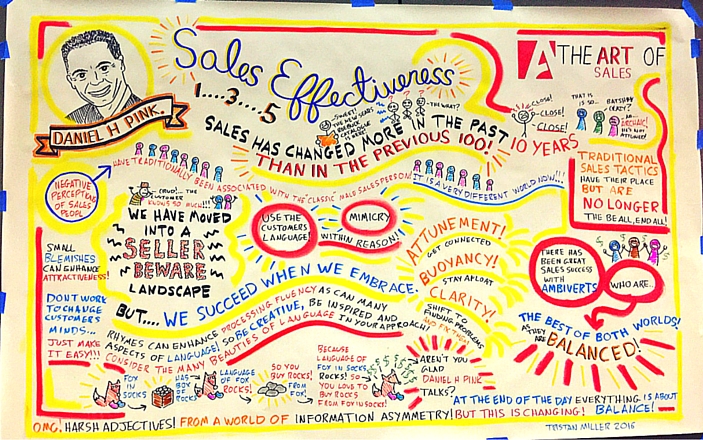 DANIEL H PINK.
Sales Effectiveness
1....3....5
A THE ART OF
SALES
SWEET!
THE NEW SEARS
CATALOG
THE WHAT?
SALES HAS CHANGED MORE IN THE PAST
10 YEARS
THAN IN THE PREVIOUS 100!
CLOSE!
CLOSE!
CLOSE!
THAT IS
IS SO...
BATSH##
CRAZY?
ARCHAIC!
HE'S NOT
ATTUNED!
NEGATIVE
PERCEPTIONS
OF SALES
PEOPLE
HAVE TRADITIONALLY BEEN ASSOCIATED WITH THE "CLASSIC" MALE SALESPERSON
IT IS A VERY DIFFERENT WORLD NOW!!!
TRADITIONAL
SALES TACTICS
HAVE THEIR PLACE
BUT ARE
NO LONGER
THE BE ALL, END ALL!
CRUD!... THE
CUSTOMER
KNOWS SO MUCH!!!
WE HAVE MOVED
INTO A
SELLER
BEWARE
LANDSCAPE
USE THE
CUSTOMERS
LANGUAGE!
MIMICRY
WITHIN REASON!!
ATTUNEMENT!
GET CONNECTED
BUOYANCY!
STAY AFLOAT
CLARITY!
SHIFT TO
FINDING PROBLEMS
AND FIX THIS
SMALL
BLEMISHES
CAN ENHANCE
ATTRACTIVENESS!
DONT WORK
TO CHANGE
CUSTOMERS
MINDS...
JUST MAKE
IT EASY!!!
BUT.... WE SUCCEED WHEN WE EMBRACE.
THERE HAS
BEEN GREAT
SALES SUCCESS
WITH
AMBIVERTS
WHO ARE...
THE BEST OF BOTH WORLDS!
AS THEY ARE
BALANCED!
RHYMES CAN ENHANCE PROCESSING FLUENCY AS CAN MANY
ASPECTS OF LANGUAGE! SO BE CREATIVE, BE INSPIRED AND
CONSIDER THE MANY BEAUTIES OF LANGUAGE IN YOUR APPROACH
FOX
IN
SOCKS
HAS
BOX OF
ROCKS
LANGUAGE
OF FOX
ROCKS!
SO YOU
BUY ROCKS!
FROM
FOX!
BECAUSE
LANGUAGE OF
FOX IN SOCKS
ROCKS! SO
YOU LOVE TO
BUY ROCKS
FROM FOX IN SOCKS!
AREN'T YOU
GLAD
DANIEL H PINK
TALKS?
"AT THE END OF THE DAY EVERYTHING IS ABOUT
BALANCE!
OMG! HARSH ADJECTIVES! FROM A WORLD OF INFORMATION ASYMMETRY! BUT THIS IS CHANGING!
TRISTAN MILLER 2016